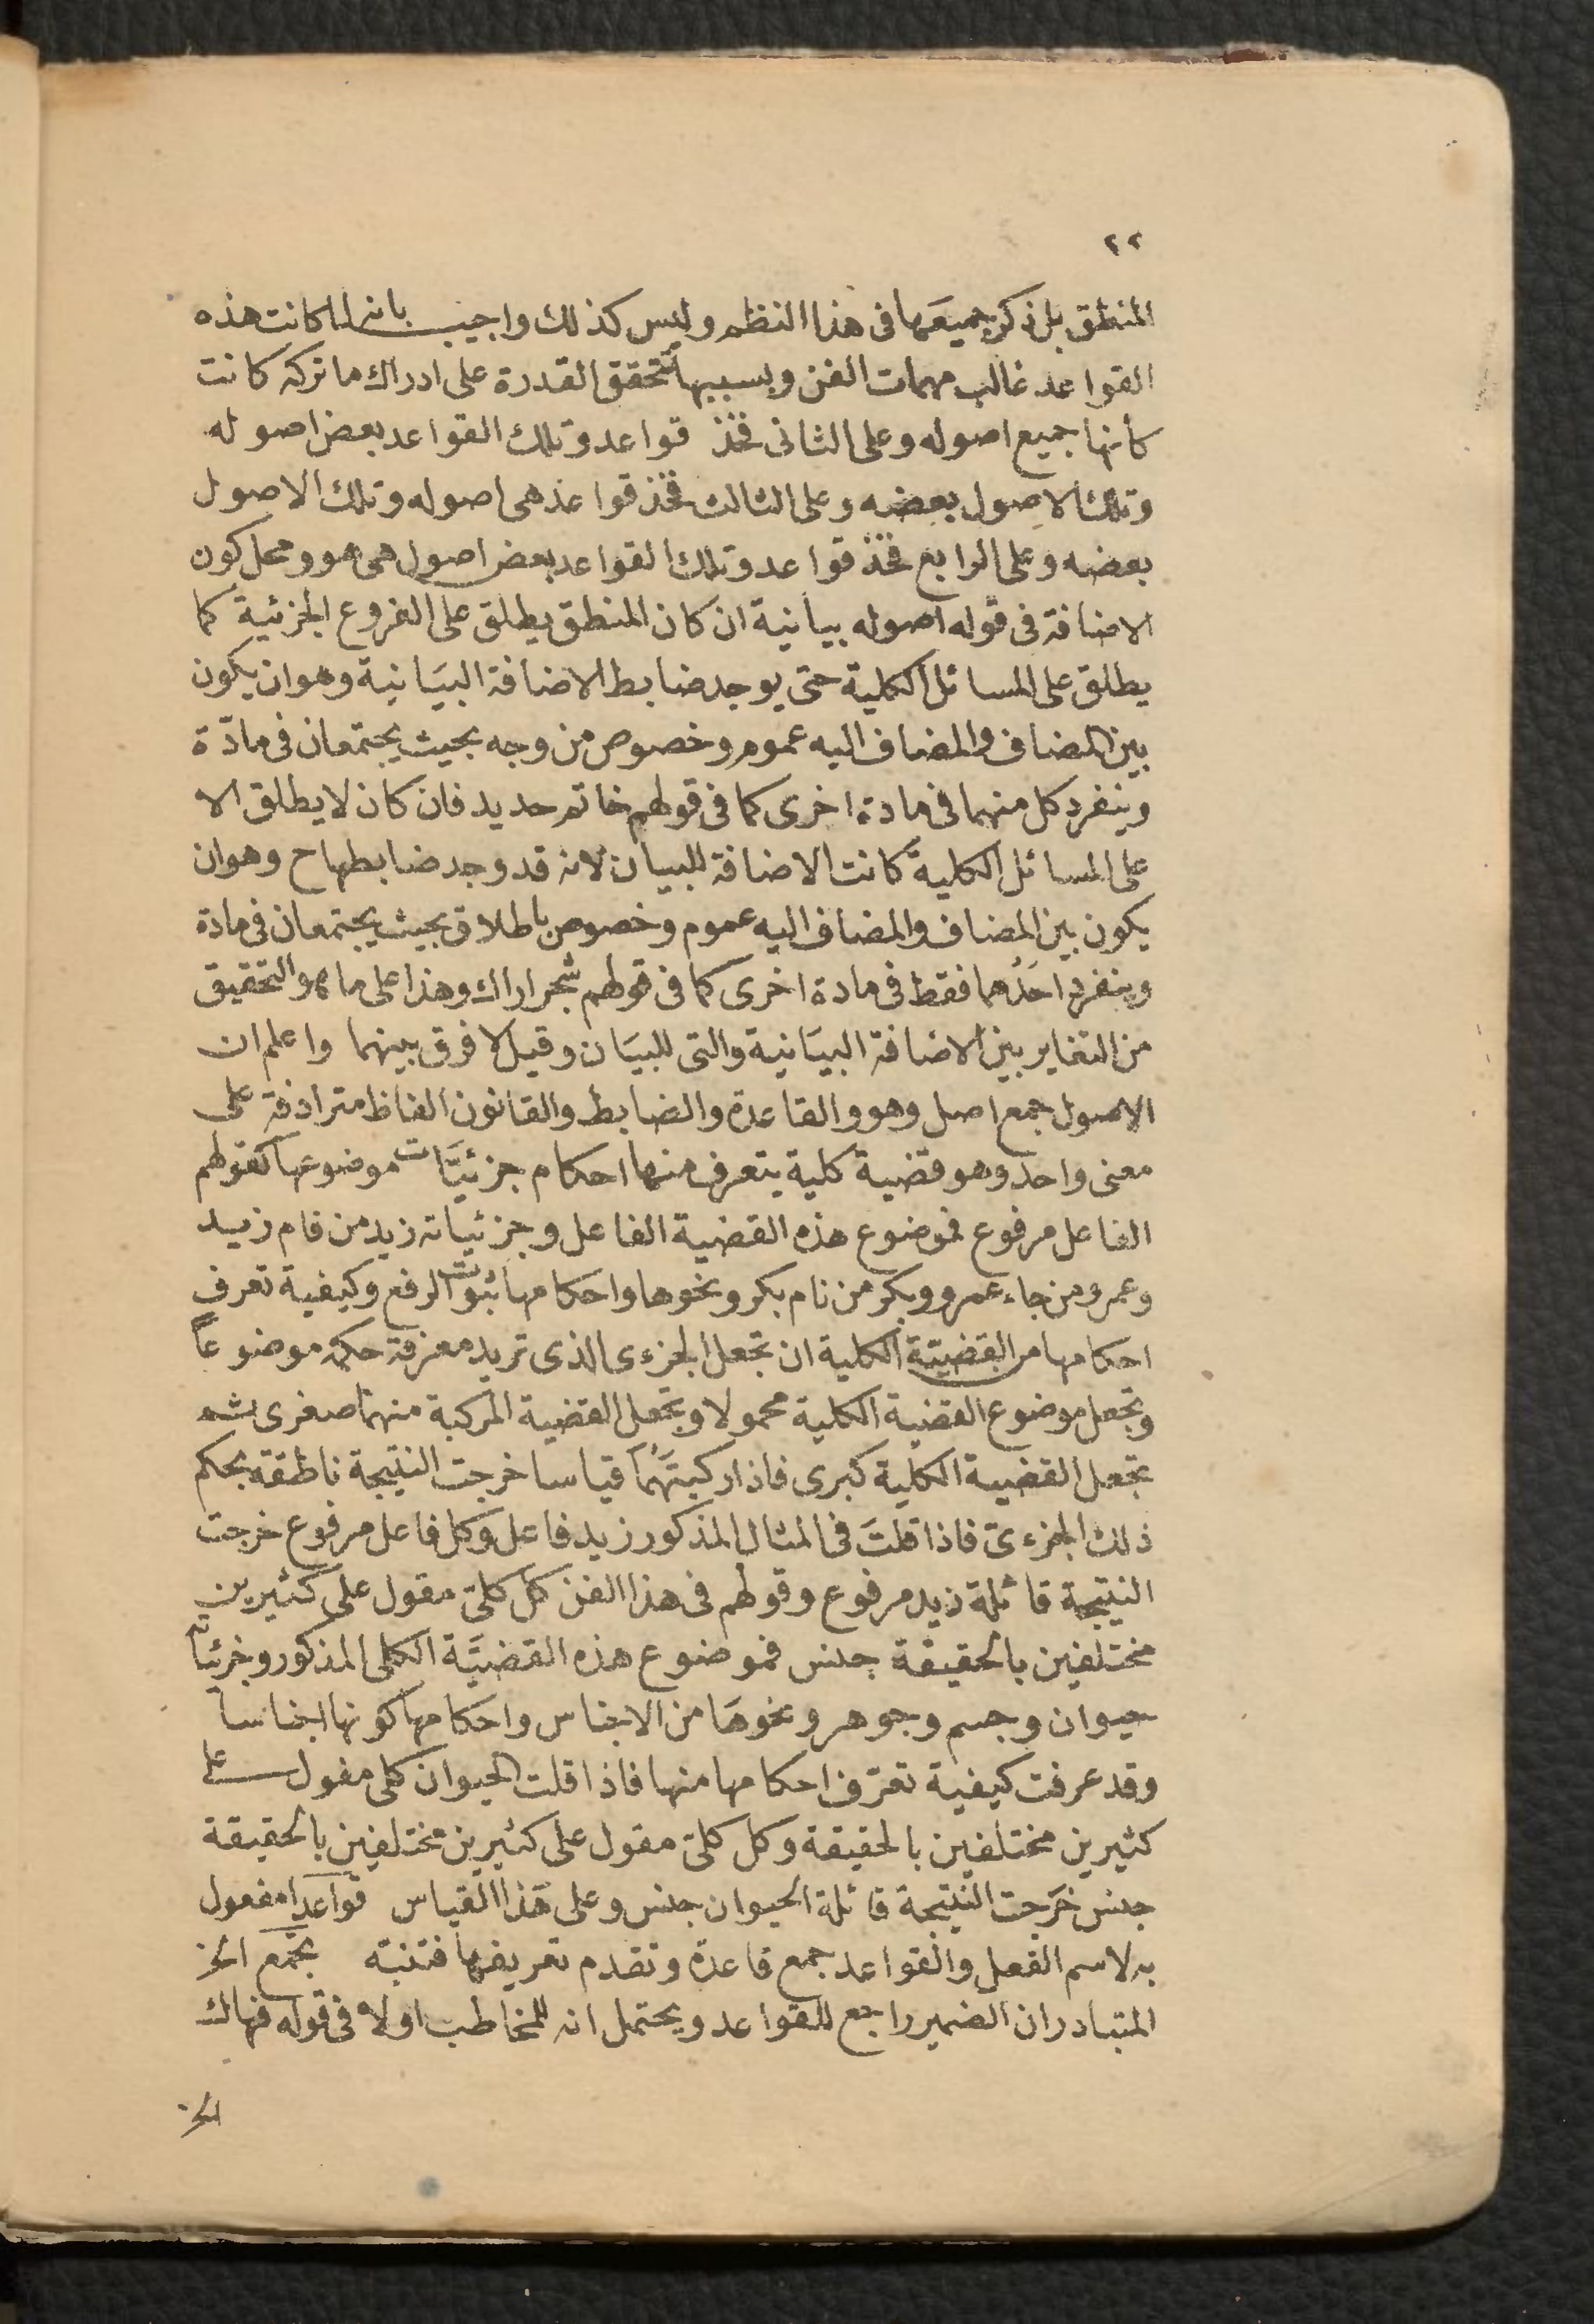 ٢٢
المنطق بل ذكر جميعَها فى هذا النظم وليس كذلك واجيب بانه لما كانت هذه
القواعد غالب مهمات الفن وبسببها تتحقق القدرة على ادراك ما تركه كانت
كأنها جميع اصوله وعلى الثانى فخذ قواعد وتلك القواعد بعض اصوله
وتلك الاصول بعضه وعلى الثالث فخذ قواعد هى اصوله وتلك الاصول
بعضه وعلى الرابع فخذ قواعد وتلك القواعد بعض اصول هى هو ومحل كون
الاضافة فى قوله اصوله بيانية ان كان المنطق يطلق على الفروع الجزئية كما
يطلق على المسائل الكلية حتى يوجد ضابط الاضافة البيَانية وهو ان يكون
بين المضاف والمضاف اليه عموم وخصوص من وجه بحيث يجتمعان فى مادّة
وينفرد كل منهما فى مادة اخرى كما فى قولهم خاتم حديد فان كان لا يطلق الا
على المسائل الكلية كانت الاضافة للبيان لانه قد وجد ضابطها ح وهو ان
يكون بين المضاف والمضاف اليه عموم وخصوص باطلاق بحيث يجتمعان فى مادة
وينفرد احدُهما فقط فى مادة اخرى كما فى قولهم شجر اراك وهذا على ما هو التحقيق
من التغاير بين الاضافة البيَانية والتى للبيَان وقيل لا فرق بينهما واعلم ان
الاصول جمع اصل وهو والقاعدة والضابط والقانون الفاظ مترادفة على
معنى واحد وهو قضية كلية يتعرف منها احكام جزئيَّات موضوعها كقولهم
الفاعل مرفوع فموضوع هذه القضية الفاعل وجزئياته زيد من قام زيد
وعمرو من جاء عمرو وبكر من نام بكر ونحوها واحكامها ثبوت الرفع وكيفية تعرف
احكامها من القضيّة الكلية ان تجعل الجزءى الذى تريد معرفة حكمه موضوعاً
وتجعل موضوع القضية الكلية محمولا وتجعل القضية المركبة منهما صغرى ثم
تجعل القضية الكلية كبرى فاذا ركبتَهُما قياسا خرجت النتيجة ناطقة بحكم
ذلك الجزءىّ فاذا قلتَ فى المثال المذكور زيد فاعل وكل فاعل مرفوع خرجت
النتيجة قائلة زيد مرفوع وقولهم فى هذا الفن كل كلىّ مقول على كثيرين
مختلفين بالحقيقة جنس فموضوع هذه القضيَّة الكلى المذكور وجزئياته
حيوان وجسم وجوهر ونحوهَا من الاجناس واحكامها كونها اجناسا
وقد عرفت كيفية تعرّف احكامها منها فاذا قلت الحيوان كلى مقول على
كثيرين مختلفين بالحقيقة وكل كلىّ مقول على كثيرين مختلفين بالحقيقة
جنس خَرَجت النتيجة قائلة الحيوان جنس وعلى هَذا القياس قواعدا مفعول
به لاسم الفعل والقواعد جمع قاعدة وتقدم تعريفها فتنبّه تجمع الخ
المتبادر ان الضمير راجع للقواعد ويحتمل انه للمخاطب اولا فى قوله فهاك
الخ